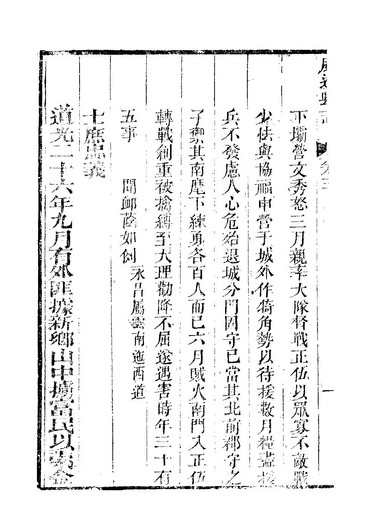 下壩營文秀怒三月親率大隊督戰正伍以眾寡不敵戰
少怯與協福申營于城外作犄角勢以待援數月糧盡援
兵不發慮人心危殆退城分門固守已當其北前郡守之
子禦其南麾下練勇各百人而已六月賊火南門入正伍
轉戰創重被擒縛至大理勸降不屈遂遇害時年三十有
五事 聞卹蔭如例 永昌屬雲南迤西道
士庶忠義
道光二十六年九月有外匪據新鄉山中擄富民以索金